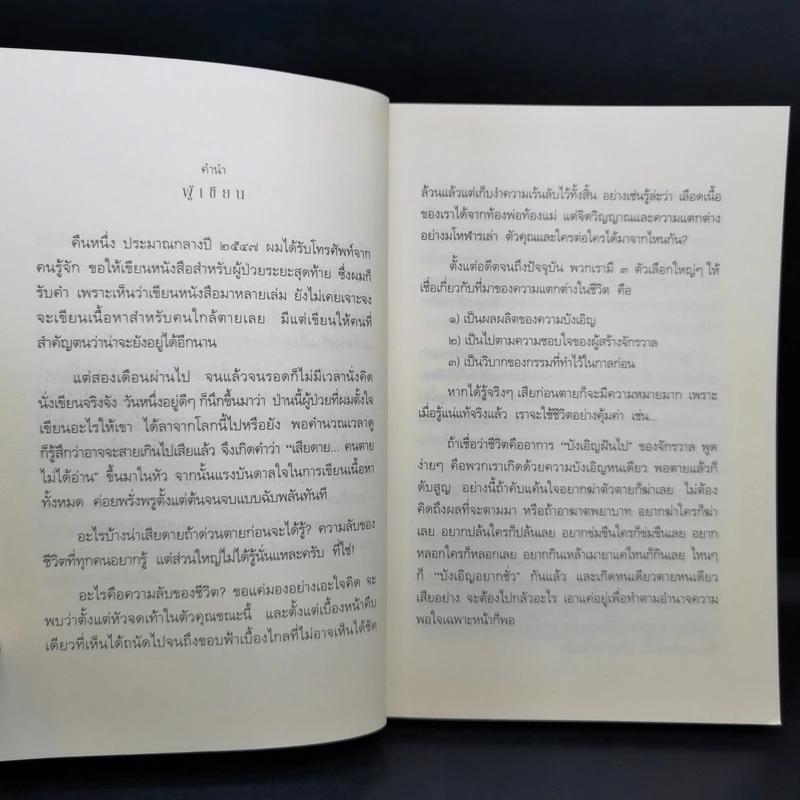 คำนำ
ผู้เขียน
คืนหนึ่ง ประมาณกลางปี ๒๕๔๗ ผมได้รับโทรศัพท์จาก
คนรู้จัก ขอให้เขียนหนังสือสำหรับผู้ป่วยระยะสุดท้าย ซึ่งผมก็
รับคำ เพราะเห็นว่าเขียนหนังสือมาหลายเล่ม ยังไม่เคยเจาะจง
จะเขียนเนื้อหาสำหรับคนใกล้ตายเลย มีแต่เขียนให้คนที่
สำคัญตนว่าน่าจะยังอยู่ได้อีกนาน
แต่สองเดือนผ่านไป จนแล้วจนรอดก็ไม่มีเวลานั่งคิด
นั่งเขียนจริงจัง วันหนึ่งอยู่ดีๆ ก็นึกขึ้นมาว่า ป่านนี้ผู้ป่วยที่ผมตั้งใจ
เขียนอะไรให้เขา ได้ลาจากโลกนี้ไปหรือยัง พอคำนวณเวลาดู
ก็รู้สึกว่าอาจจะสายเกินไปเสียแล้ว จึงเกิดคำว่า “เสียดาย... คนตาย
ไม่ได้อ่าน” ขึ้นมาในหัว จากนั้นแรงบันดาลใจในการเขียนเนื้อหา
ทั้งหมด ค่อยพรั่งพรูตั้งแต่ต้นจนจบแบบฉับพลันทันที
อะไรบ้างน่าเสียดายถ้าด่วนตายก่อนจะได้รู้? ความลับของ
ชีวิตที่ทุกคนอยากรู้ แต่ส่วนใหญ่ไม่ได้รู้นั่นแหละครับ ที่ใช่!
อะไรคือความลับของชีวิต? ขอแค่มองอย่างเอะใจคิด จะ
พบว่าตั้งแต่หัวจดเท้าในตัวคุณขณะนี้ และตั้งแต่เบื้องหน้าคืบ
เดียวที่เห็นได้ถนัดไปจนถึงขอบฟ้าเบื้องไกลที่ไม่อาจเห็นได้ชัด
ล้วนแล้วแต่เก็บงำความเร้นลับไว้ทั้งสิ้น อย่างเช่นรู้ล่ะว่า เลือดเนื้อ
ของเราได้จากท้องพ่อท้องแม่ แต่จิตวิญญาณและความแตกต่าง
อย่างมโหฬารเล่า ตัวคุณและใครต่อใครได้มาจากไหนกัน?
ตั้งแต่อดีตจนถึงปัจจุบัน พวกเรามี ๓ ตัวเลือกใหญ่ๆ ให้
เชื่อเกี่ยวกับที่มาของความแตกต่างในชีวิต คือ
๑) เป็นผลผลิตของความบังเอิญ
๒) เป็นไปตามความชอบใจของผู้สร้างจักรวาล
๓) เป็นวิบากของกรรมที่ทำไว้ในกาลก่อน
หากได้รู้จริงๆ เสียก่อนตายก็จะมีความหมายมาก เพราะ
เมื่อรู้แน่แท้จริงแล้ว เราจะใช้ชีวิตอย่างคุ้มค่า เช่น...
ถ้าเชื่อว่าชีวิตคืออาการ “บังเอิญฝันไป” ของจักรวาล พูด
ง่ายๆ คือพวกเราเกิดด้วยความบังเอิญหนเดียว พอตายแล้วก็
ดับสูญ อย่างนี้ถ้าคับแค้นใจอยากฆ่าตัวตายก็ฆ่าเลย ไม่ต้อง
คิดถึงผลที่จะตามมา หรือถ้าอาฆาตพยาบาท อยากฆ่าใครก็ฆ่า
เลย อยากปล้นใครก็ปล้นเลย อยากข่มขืนใครก็ข่มขืนเลย อยาก
หลอกใครก็หลอกเลย อยากกินเหล้าเมายาแค่ไหนก็กินเลย ไหนๆ
ก็ “บังเอิญอยากชั่ว” กันแล้ว และเกิดหนเดียวตายหนเดียว
เสียอย่าง จะต้องไปกลัวอะไร เอาแค่อยู่เพื่อทำตามอำนาจความ
พอใจเฉพาะหน้าก็พอ